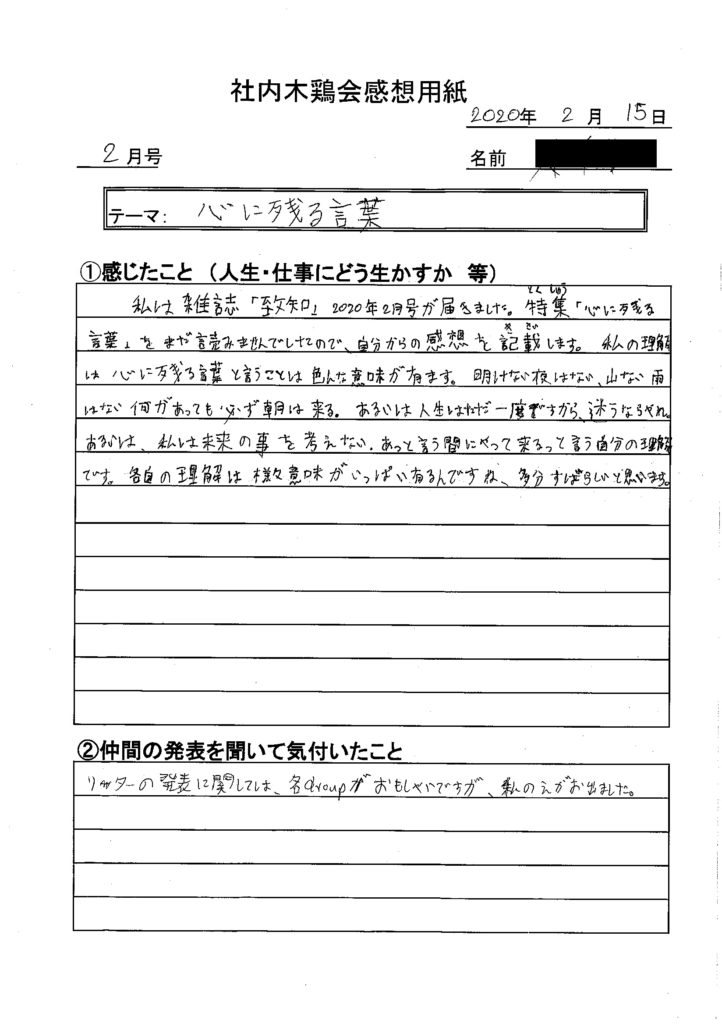 社内木鶏会感想用紙
2020年 2月 15日
2月号
名前
テーマ: 心に残る言葉
①感じたこと (人生・仕事にどう生かすか 等)
私は雑誌「致知」2020年2月号が届きました。特集「心に残る
とくしゅう
言葉」をまだ読みませんでしたので、自分からの感想を記載します。私の理解
きさい
は心に残る言葉と言うことは色んな意味が有ます。明けない夜はない、山ない雨
はない何があっても必ず朝は来る。あるいは人生はただ一度ですから、迷うなられ
あるいは、私は未来の事を考えない.あっと言う間にやって来るって言う自分の理解
です。各自の理解は様々意味がいっぱい有るんですね、多分すばらしいと思います。
②仲間の発表を聞いて気付いたこと
リーダーの発表に関しては、各groupが おもしろいですが、私の えがお出ました。